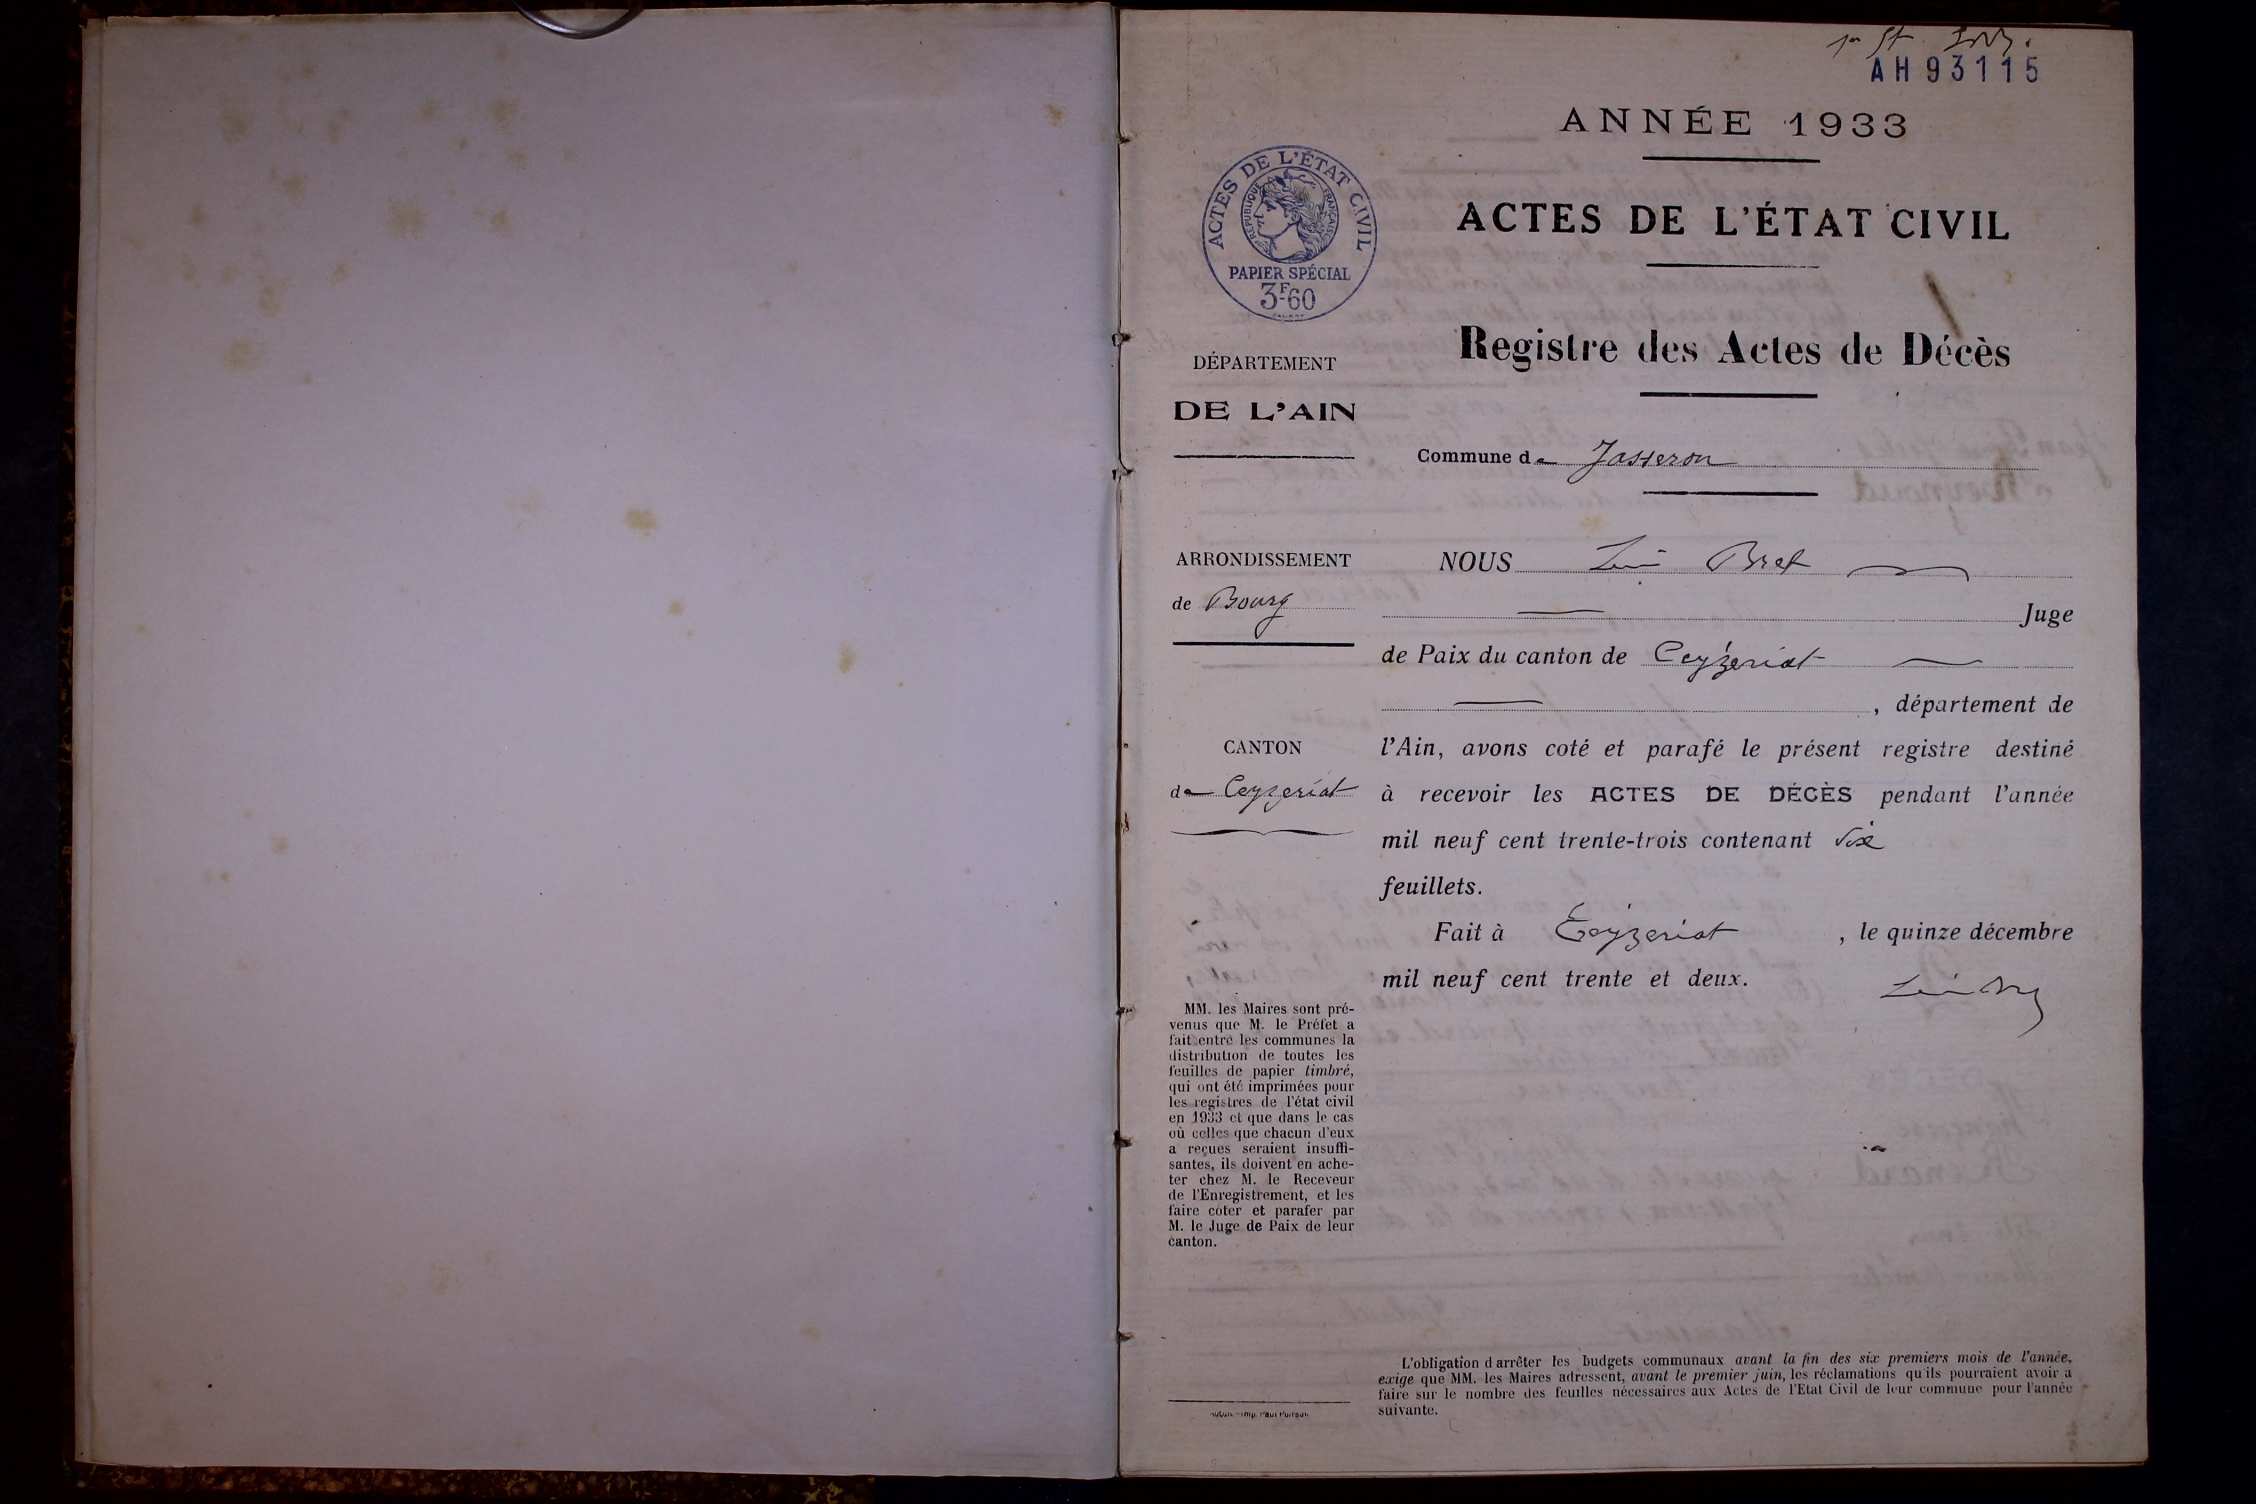 AH93115
ANNÉE 1933
ACTES DE L'ÉTAT CIVIL
RÉPUBLIQUE FRANÇAISE
PAPIER SPÉCIAL
3F60
ACTES DE L'ÉTAT CIVIL
Registre des Actes de Décès
DÉPARTEMENT
DE L'AIN
Commune de Jasseron
ARRONDISSEMENT
de Bourg
CANTON
de Ceyzeriat
NOUS Bret
Juge
de Paix du canton de Ceyzeriat
, département de
l'Ain, avons coté et parafé le présent registre destiné
à recevoir les ACTES DE DÉCÈS pendant l'année
mil neuf cent trente-trois contenant six
feuillets.
Fait à Ceyzeriat , le quinze décembre
mil neuf cent trente et deux.
MM. les Maires sont pré-
venus que M. le Préfet a
fait entre les communes la
distribution de toutes les
feuilles de papier timbré,
qui ont été imprimées pour
les registres de l'état civil
en 1933 et que dans le cas
où celles que chacun d'eux
a reçues seraient insuffi-
santes, ils doivent en ache-
ter chez M. le Receveur
de l'Enregistrement, et les
faire coter et parafer par
M. le Juge de Paix de leur
canton.
L'obligation d'arrêter les budgets communaux avant la fin des six premiers mois de l'année,
exige que MM. les Maires adressent, avant le premier juin, les réclamations qu'ils pourraient avoir à
faire sur le nombre des feuilles nécessaires aux Actes de l'Etat Civil de leur commune pour l'année
suivante.